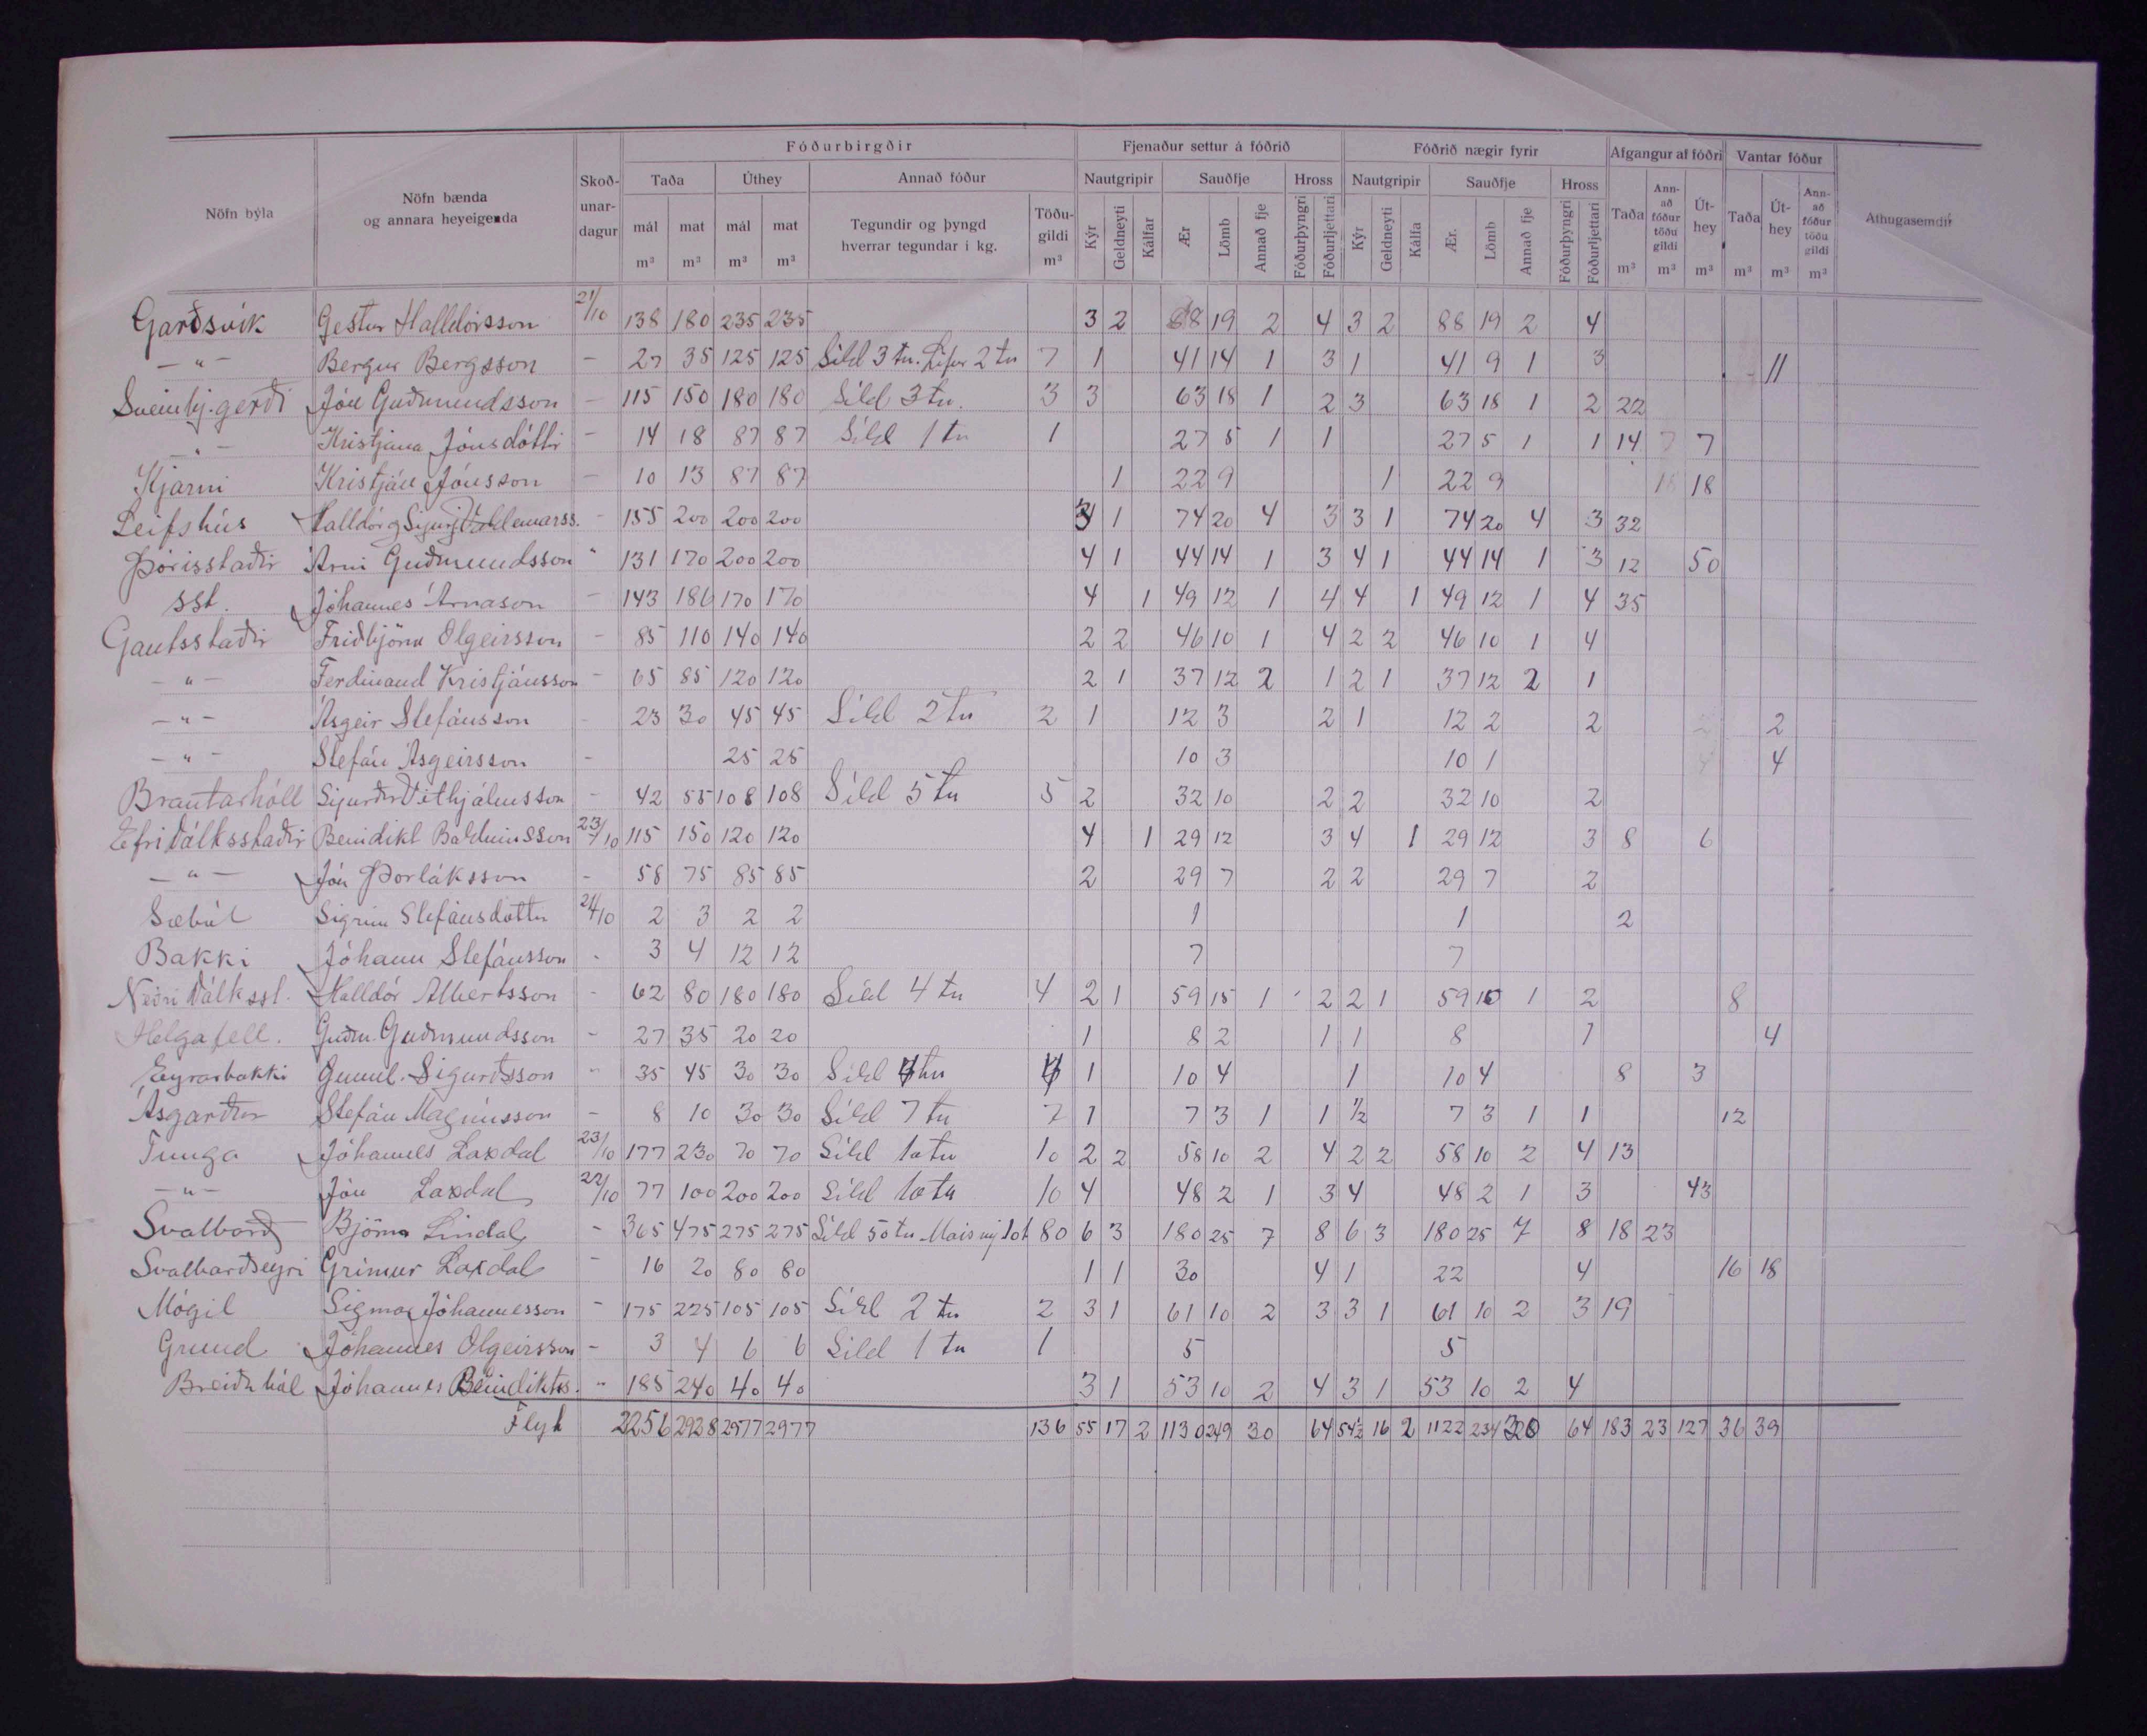 Fóðurbirgðir Fjenaður settur á fóðrið Fóðrið nægir fyrir Afgangur af fóðri Vantar fóður
Nöfn býla Nöfn bænda og annara heyeigenda Skoð-unar-dagur Taða Úthey Annað fóður Nautgripir Sauðfje Hross Nautgripir Sauðfje Hross Taða Ann-að fóður töðu gildi Út-hey Taða Út-hey Ann-að fóður töðu gildi Athugasemdir
mál mat mál mat Tegundir og þyngd hverrar tegundar í kg. Töðu-gildi Kýr Geldneyti Kálfar Ær Lömb Annað fje Fóðurþyngri Fóðurljettari Kýr Geldneyti Kálfa Ær. Lömb Annað fje Fóðurþyngri Fóðurljettari
m³ m³ m³ m³ m³ m³ m³ m³ m³ m³ m³
Garðsvík Gestur Halldórsson 21/10 138 180 235 235 3 2 88 19 2 4 3 2 88 19 2 4
— " — Bergur Bergsson — 27 35 125 125 Síld 3 tn. Lifur 2 tn 7 1 41 14 1 3 1 41 9 1 3 11
Sveinbj.gerði Jón Guðmundsson — 115 150 180 180 Síld 3 tn. 3 3 63 18 1 2 3 63 18 1 2 22
— " — Kristjana Jónsdóttir — 14 18 87 87 Síld 1 tn 1 27 5 1 1 27 5 1 1 14 7 7
Kjarni Kristján Jónsson — 10 13 87 87 1 22 9 1 22 9 18 18
Leifshús Halldór og Sigurj Valdemarss. - 155 200 200 200 3 1 74 20 4 3 3 1 74 20 4 3 32
Þórisstaðir Árni Guðmundsson " 131 170 200 200 4 1 44 14 1 3 4 1 44 14 1 3 12 50
sst. Jóhannes Árnason — 143 186 170 170 4 1 49 12 1 4 4 1 49 12 1 4 35
Gautsstaðir Friðbjörn Olgeirsson — 85 110 140 140 2 2 46 10 1 4 2 2 46 10 1 4
— " — Ferdinand Kristjánsson — 65 85 120 120 2 1 37 12 2 1 2 1 37 12 2 1
— " — Ásgeir Stefánsson - 23 30 45 45 Síld 2 tn 2 1 12 3 2 1 12 2 2 2 2
— " — Stefán Ásgeirsson - 25 25 10 3 10 1 4 4
Brautarhóll Sigurður Vilhjálmsson - 42 55 108 108 Síld 5 tn 5 2 32 10 2 2 32 10 2
Efri Dálksstaðir Benidikt Baldvinsson 23/10 115 150 120 120 4 1 29 12 3 4 1 29 12 3 8 6
— " — Jón Þorláksson - 58 75 85 85 2 29 7 2 2 29 7 2
Sæból Sigrún Stefánsdóttir 24/10 2 3 2 2 1 1 2
Bakki Jóhann Stefánsson - 3 4 12 12 7 7
Neðri Dálksst. Halldór Albertsson - 62 80 180 180 Síld 4 tn 4 2 1 59 15 1 2 2 1 59 10 1 2 8
Helgafell. Guðm. Guðmundsson - 27 35 20 20 1 8 2 1 1 8 1 4
Eyrarbakki Gunnl. Sigurðsson " 35 45 30 30 Síld 4 tn 4 1 10 4 1 10 4 8 3
Ásgarður Stefán Magnússon - 8 10 30 30 Síld 7 tn 7 1 7 3 1 1 ½ 7 3 1 1 12
Tunga Jóhannes Laxdal 23/10 177 230 70 70 Síld 10 tn 10 2 2 58 10 2 4 2 2 58 10 2 4 13
— " — Jón Laxdal 22/10 77 100 200 200 Síld 10 tn 10 4 48 2 1 3 4 48 2 1 3 43
Svalbarð Björn Líndal - 365 475 275 275 Síld 50 tn Mais mj 80 6 3 180 25 7 8 6 3 180 25 7 8 18 23
Svalbarðseyri Grímur Laxdal - 16 20 80 80 1 1 30 4 1 22 4 16 18
Mógil Sigmar Jóhannesson - 175 225 105 105 Síld 2 tn 2 3 1 61 10 2 3 3 1 61 10 2 3 19
Grund Jóhannes Olgeirsson - 3 4 6 6 Síld 1 tn 1 5 5
Breiðaból Jóhannes Benidiktss. " 185 240 40 40 3 1 53 10 2 4 3 1 53 10 2 4
Flyt 2256 2928 2977 2977 136 55 17 2 1130 249 30 64 54½ 16 2 1122 234 30 64 183 23 127 36 39